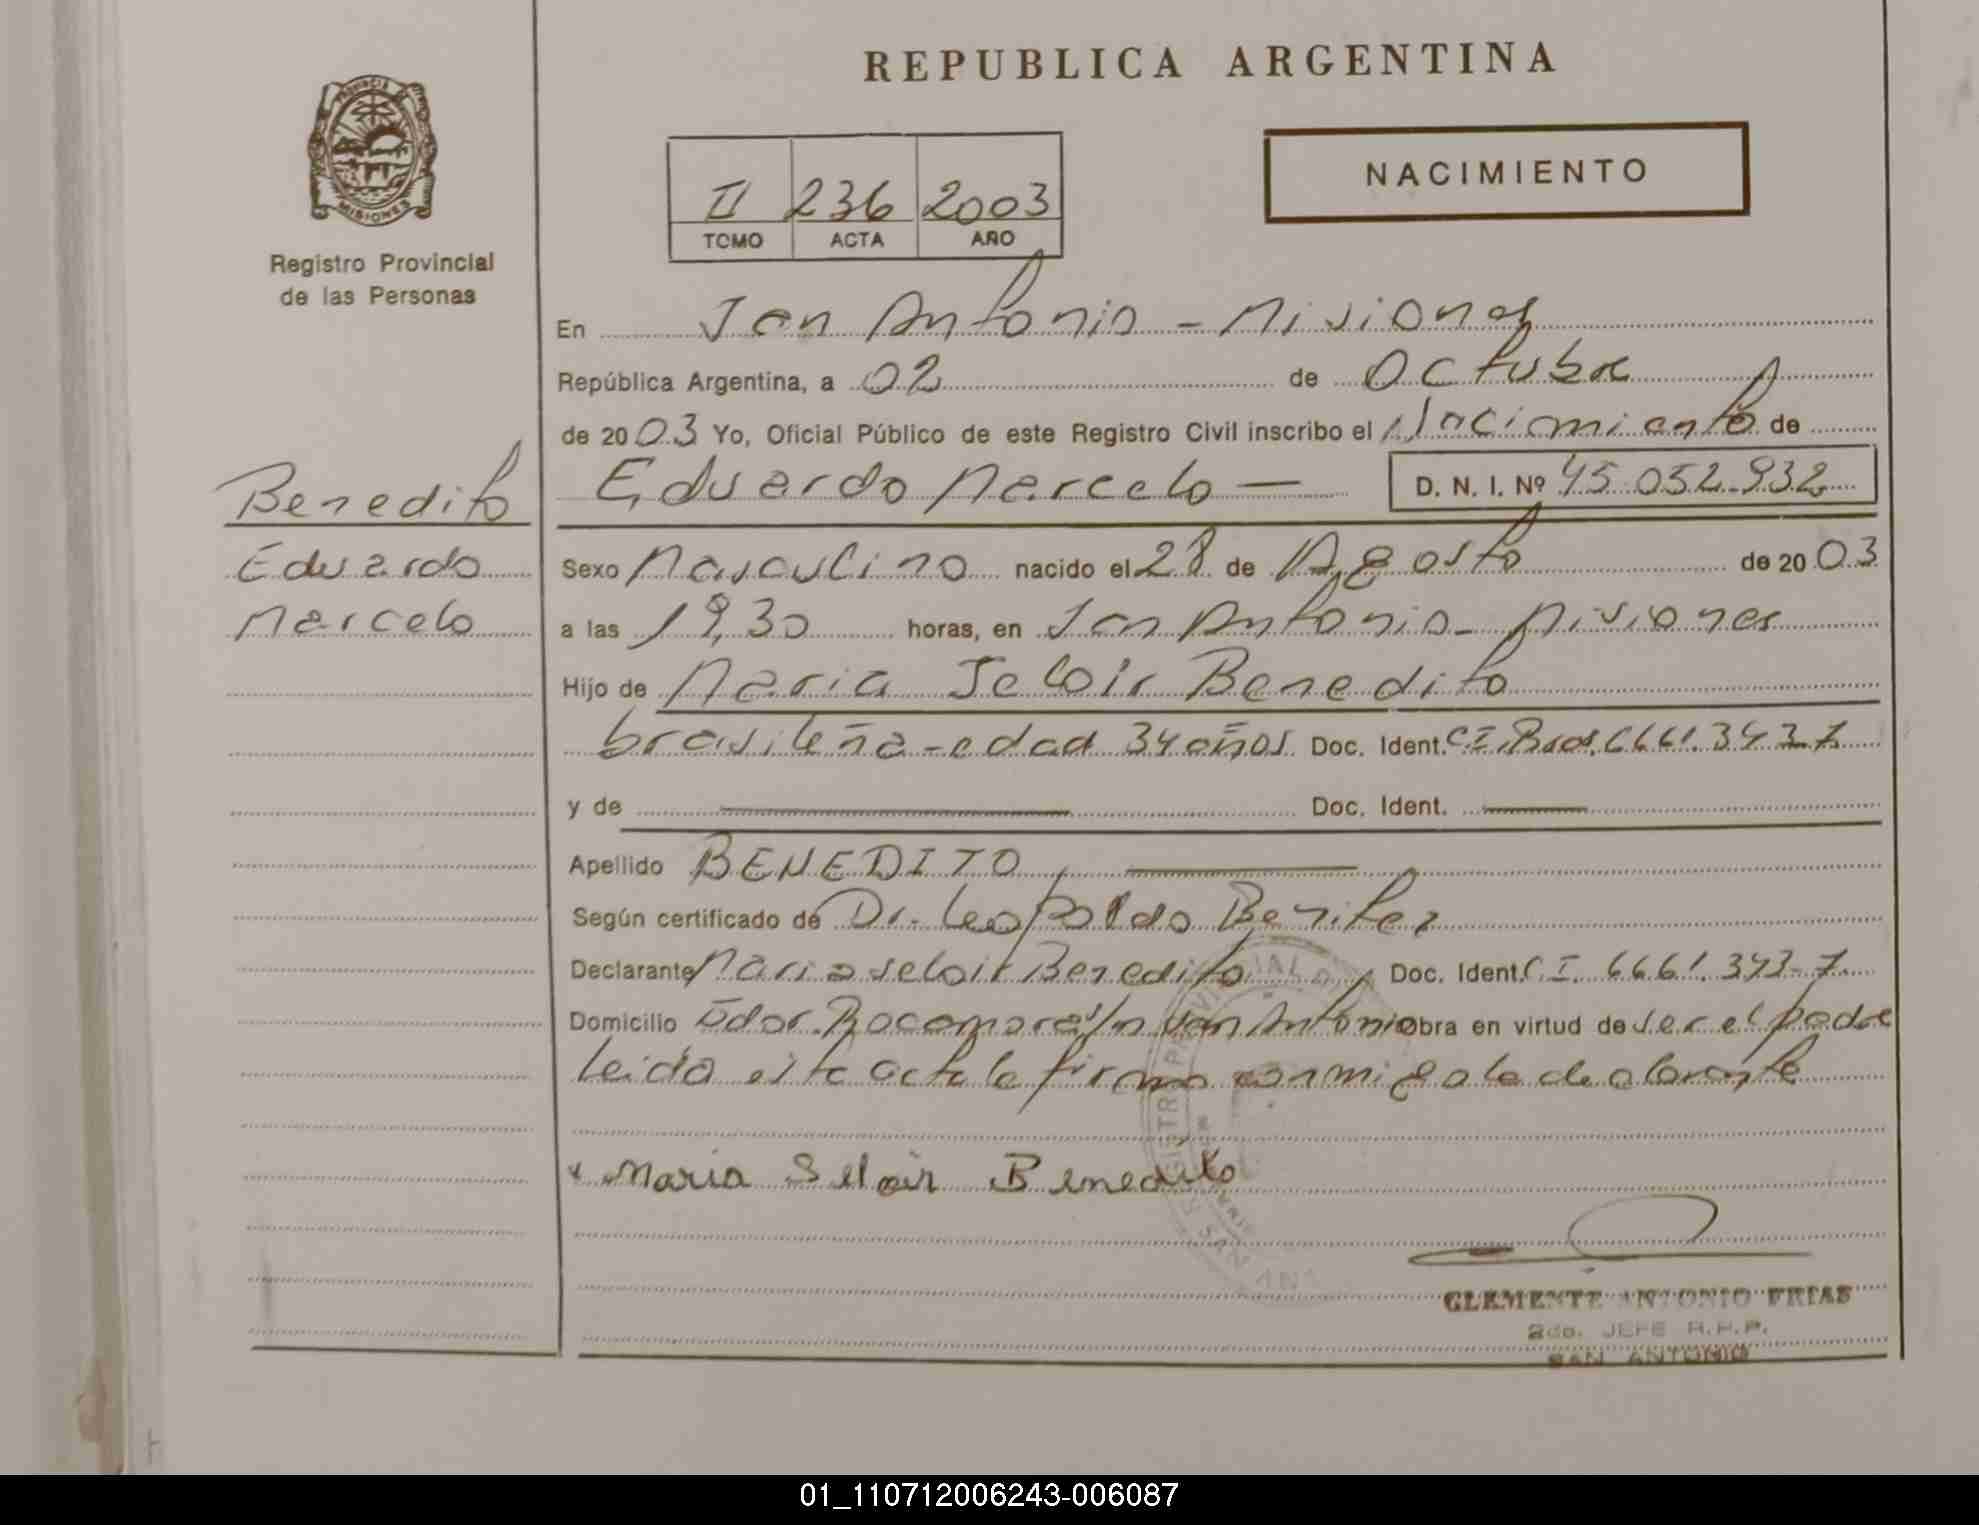 REPUBLICA ARGENTINA
PROVINCIA DE
MISIONES
Registro Provincial
de las Personas
II 236 2003
TOMO ACTA AÑO
NACIMIENTO
En San Antonio - Misiones
República Argentina, a 02 de Octubre
de 2003 Yo, Oficial Público de este Registro Civil inscribo el Nacimiento de
Benedito
Eduardo
Marcelo
Eduardo Marcelo — D. N. I. Nº 45.052.932
Sexo Masculino nacido el 28 de Agosto de 2003
a las 19,30 horas, en San Antonio - Misiones
Hijo de Maria Seloir Benedito
brasileña - edad 34 años Doc. Ident. C I. Bras. 6661.343-7
y de Doc. Ident.
Apellido BENEDITO
Según certificado de Dr. Leopoldo Benitez
Declarante Maria Seloir Benedito Doc. Ident. C I. 6661.343-7
Domicilio s/n San Antonio Obra en virtud de ser el padre
Leida esta acta la firma conmigo la declarante
Maria Seloir Benedito
CLEMENTE ANTONIO FRIAS
2do. JEFE R.P.P.
SAN ANTONIO
01_110712006243-006087